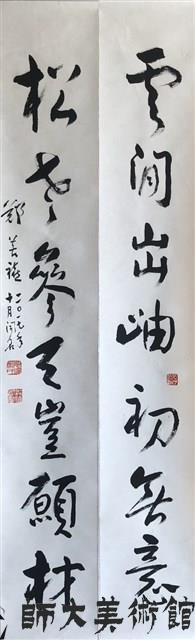 雲閒出岫初無意
松老參天豈願材
鄭善禧
二〇一九年
十一月閒石
師大美術館